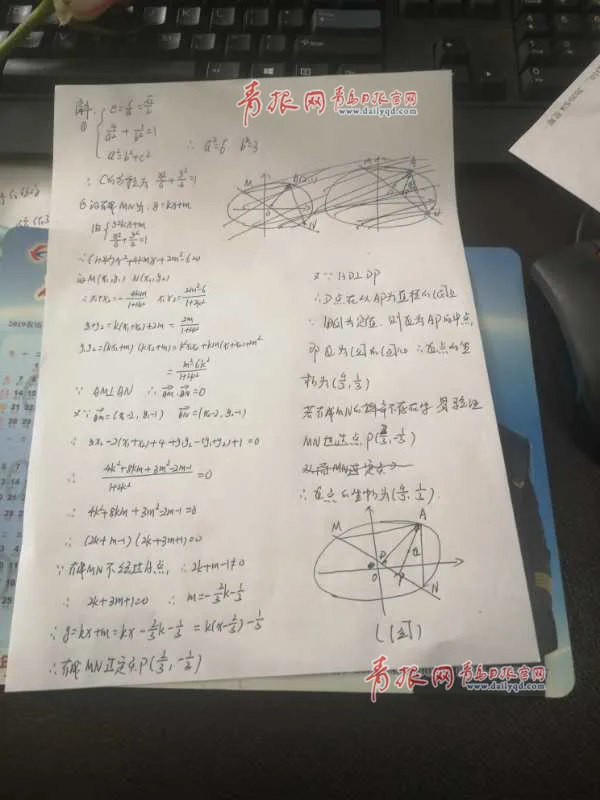 青报网 青岛日报官网
www.dailyqd.com
解:
① { e=c/a=√2/2
4/a²+1/b²=1
a²=b²+c²
∴ a²=6 b²=3
∴ C的方程为 x²/6+y²/3=1
② 设直线MN为: y=kx+m
由 { y=kx+m
x²/6+y²/3=1
∴(1+2k²)x²+4kmx+2m²-6=0
设M(x₁,y₁) N(x₂,y₂)
∴x₁+x₂=-4km/1+2k² x₁x₂=2m²-6/1+2k²
y₁+y₂=k(x₁+x₂)+2m=2m/1+2k²
y₁y₂=(kx₁+m)(kx₂+m)=k²x₁x₂+km(x₁+x₂)+m²
=m²-6k²/1+2k²
∵ AM⊥AN ∴ AM·AN=0
又∵ AM=(x₁-2, y₁-1) AN=(x₂-2, y₂-1)
∴ x₁x₂-2(x₁+x₂)+4+y₁y₂-(y₁+y₂)+1=0
∴ 4k²+8km+3m²-2m-1/1+2k²=0
∴ 4k²+8km+3m²-2m-1=0
∴ (2k+m-1)(2k+3m+1)=0
∵直线MN不经过A点, ∴2k+m-1≠0
∴ 2k+3m+1=0 ∴ m=-2/3k-1/3
∴y=kx+m=kx-2/3k-1/3=k(x-2/3)-1/3
∴直线MN过定点P(2/3,-1/3)
M
A(2,1)
O
N
又∵ AD⊥DP
∴D点在以AP为直径的圆上
∵ |DQ|为定值, 则Q为AP的中点,
即Q为圆的圆心 ∴Q点的坐
标为(4/3,1/3)
若直线MN的斜率不存在时
MN过定点P(2/3,-1/3)
∴Q点的坐标为(4/3,1/3)
M
A
D
Q
O
P
N
(图)
青报网 青岛日报官网
www.dailyqd.com